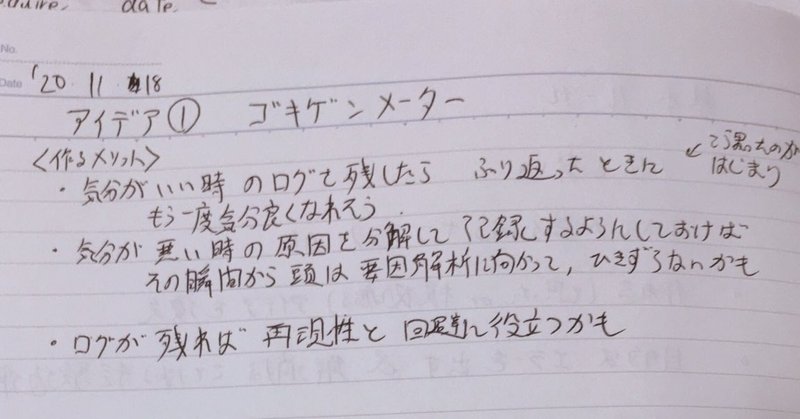 date.
No.
Date '20 11 18
アイデア① ゴキゲンメーター
<作るメリット>
・気分がいい時のログを残したら ふり返ったときに ← こう思ったのが
はじまり
もう一度気分良くなれそう.
・気分が悪い時の原因を分解して記録するようにしておけば
その瞬間から頭は要因解析に向かって, ひきずらないかも
・ログが残れば 再現性と回避に役立つかも